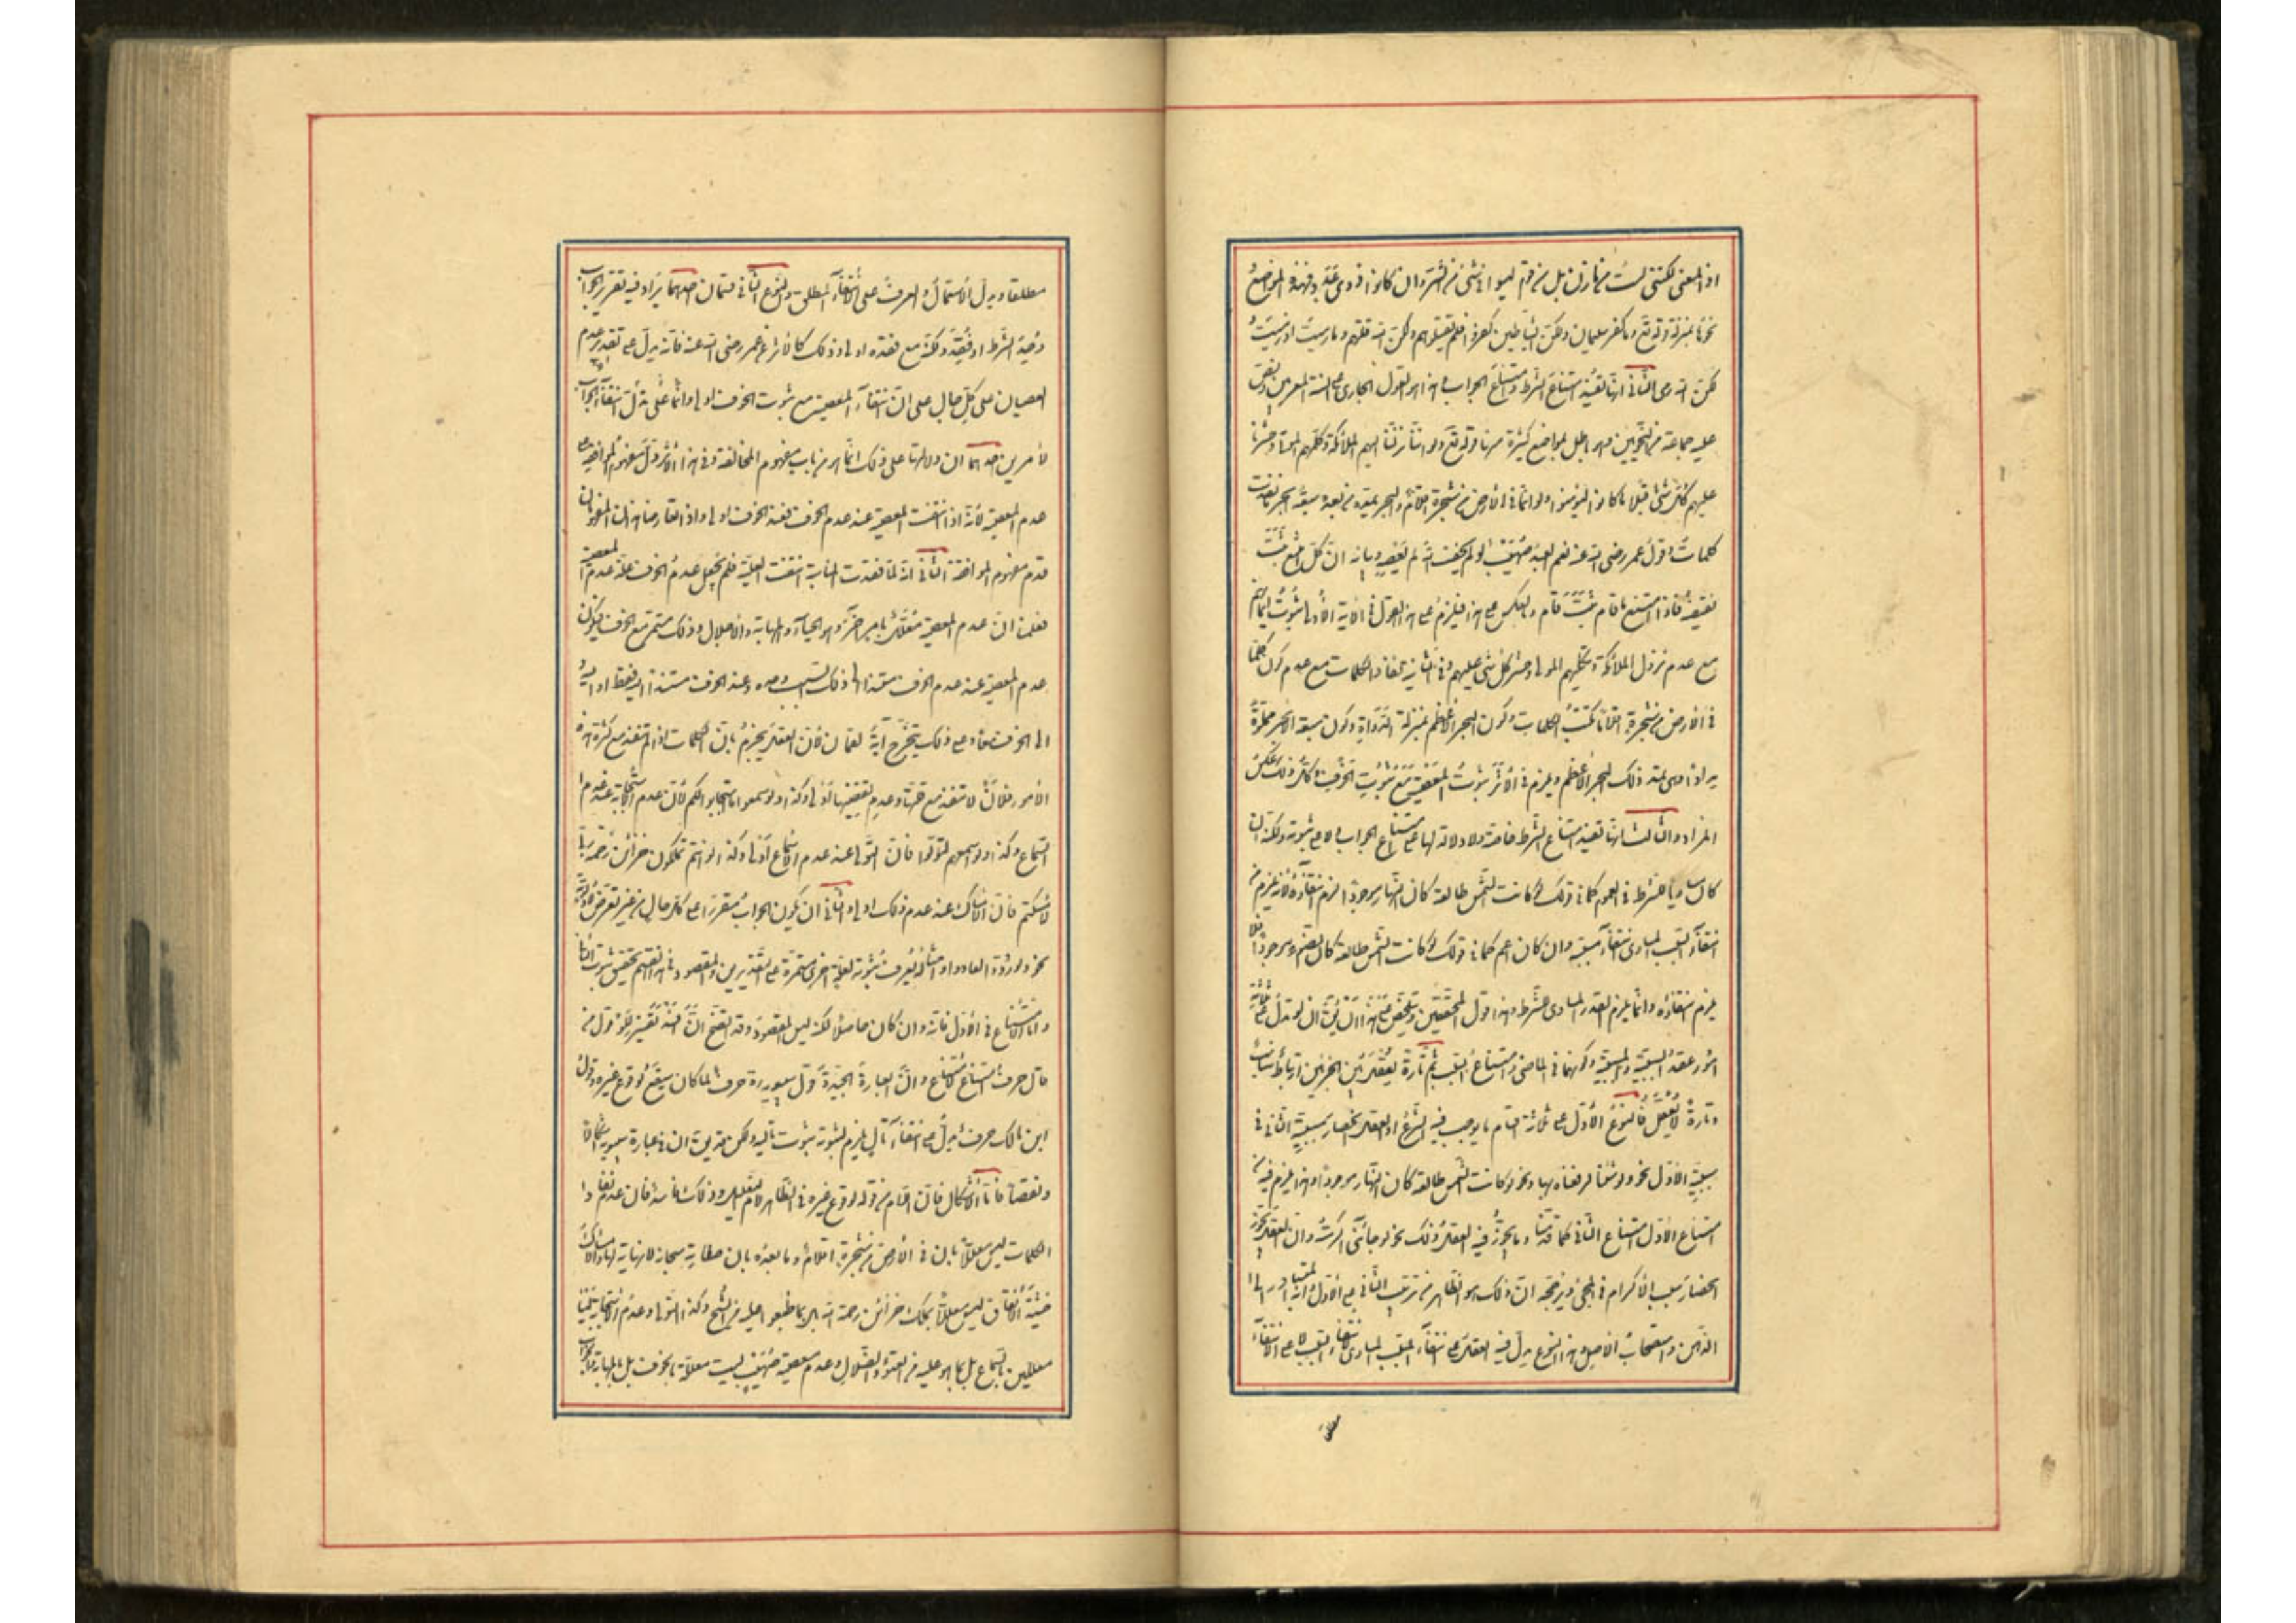 اذ المعنى لكننى لست من مازن بل من قوم ليسوا فى شئ من الشر وان كانوا ذوى عدد فهذه المواضع
نحوها بمنزلة قوله تع وما كفر سليمان ولكن الشياطين كفروا فلم تقتلوهم ولكن الله قتلهم وما رميت اذ رميت
ولكن الله رمى الثانى انها تفيد امتناع الشرط وامتناع الجواب جميعا وهذا هو القول الجارى على السنة المعربين ونص
عليه جماعة من النحويين وهو باطل بمواضع كثيرة منها قوله تع ولو اننا نزلنا اليهم الملائكة وكلمهم الموتى وحشرنا
عليهم كل شئ قبلا ما كانوا ليؤمنوا ولو انما فى الارض من شجرة اقلام والبحر يمده من بعده سبعة ابحر ما نفدت
كلمات وقول عمر رضى الله عنه نعم العبد صهيب لو لم يخف الله لم يعصه وبيانه ان كل شئ امتنع ثبت
نقيضه فاذا امتنع ما قام ثبت قام وبالعكس على هذا فيلزم على هذا القول فى الاية الاولى ثبوت ايمانهم
مع عدم نزول الملائكة وتكليم الموتى وحشر كل شئ عليهم وفى الثانية نفاد الكلمات مع عدم كون كل ما
فى الارض من شجرة اقلاما تكتب الكلمات وكون البحر الاعظم بمنزلة الدواة وكون سبعة الابحر مملوة
مدادا وهى تمد ذلك البحر الاعظم ويلزم فى الاثر ثبوت المعصية مع ثبوت الخوف وكل ذلك عكس
المراد والثالث انها تفيد امتناع الشرط خاصة ولا دلالة لها على امتناع الجواب ولا على ثبوته ولكنه ان
كان مساويا للشرط فى العموم كما فى قولك لو كانت الشمس طالعة كان النهار موجودا لزم انتفاؤه لانه يلزم من
انتفاء السبب المساوى انتفاء مسببه وان كان اعم كما فى قولك لو كانت الشمس طالعة كان الضوء موجودا فلا
يلزم انتفاؤه وانما يلزم القدر المساوى للشرط وهذا قول المحققين ويتلخص على هذا ان يقال ان لو تدل على ثلثة
امور عقد السببية والمسببية وكونهما فى الماضى وامتناع السبب ثم تارة يعقل بين الجزئين ارتباط مناسب
وتارة لا يعقل فالنوع الاول على ثلاثة اقسام ما يوجب فيه الشرع او العقل انحصار مسببية الثانى فى
سببية الاول نحو ولو شئنا لرفعناه بها ونحو لو كانت الشمس طالعة كان النهار موجودا وهذا يلزم فيه من
امتناع الاول امتناع الثانى كما قدمنا وما يجوز فيه العقل ذلك نحو لو جائنى اكرمته وان العقل يجوز
انحصار سبب الاكرام فى المجئ ويرجحه ان ذلك هو الظاهر من ترتيب الثانى على الاول وانه المتبادر الى
الذهن واستصحاب الاصل وهذا النوع يدل فيه العقل على انتفاء المسبب المساوى لانتفاء السبب لا على الانتفاء
مطلقا ويدل الاستعمال والعرف على الانتفاء المطلق والنوع الثانى قسمان احدهما يراد فيه تقرير الجواب
وجد الشرط او فقد ولكنه مع فقده اولى وذلك كالاثر عن عمر رضى الله عنه فانه يدل على تقدير عدم
العصيان على كل حال على ان انتفاء المعصية مع ثبوت الخوف اولى وانما لم تدل على انتفاء الجواب
لامرين احدهما ان دلالتها على ذلك انما هو من باب مفهوم المخالفة وفى هذا الاثر دل مفهوم الموافقة على
عدم المعصية لانه اذا انتفت المعصية عند عدم الخوف فعند الخوف اولى واذا تعارض هذان المفهومان
قدم مفهوم الموافقة الثانى انه لما فقدت المناسبة انتفت العلية فلم يجعل عدم الخوف علة عدم المعصية
فعلمنا ان عدم المعصية معلل بامر اخر وهو الحياء والمهابة والاجلال وذلك مستمر مع الخوف فيكون
عدم المعصية عند عدم الخوف مستندا الى ذلك السبب وحده وعند الخوف مستندا اليه فقط او اليه
والى الخوف معا وعلى ذلك يتخرج اية لقمان لان العقل يجزم بان الكلمات اذا لم تنفد مع كثرة هذه
الامور فلان لا تنفد مع قلتها وعدم بعضها اولى وكذا ولو سمعوا ما استجابوا لكم لان عدم الاستجابة عند عدم
السماع وكذا ولو اسمعهم لتولوا فان التولى عند عدم الاسماع اولى وكذا لو انتم تملكون خزائن رحمة ربى
لامسكتم فان الامساك عند عدم ذلك اولى والثانى ان يكون الجواب مقررا على كل حال من غير تعرض لاولوية
نحو ولو ردوا لعادوا وامثاله يعرف ثبوته لعلة اخرى مستمرة على التقديرين والمقصود فى هذا القسم تحقيق ثبوت الثانى
واما الامتناع فى الاول فانه وان كان حاصلا لكنه ليس المقصود وقد اتضح ان افسد تفسير للو قول من
قال حرف امتناع لامتناع وان العبارة الجيدة قول سيبويه حرف لما كان سيقع لوقوع غيره وقول
ابن مالك حرف يدل على انتفاء تال يلزم لثبوته ثبوت تاليه ولكن قد يقال ان فى عبارة سيبويه اشكالا
ونقصا فاما الاشكال فان اللام من قوله لوقوع غيره فى الظاهر لام التعليل وذلك فاسد فان عدم نفاد
الكلمات ليس معللا بان فى الارض من شجرة اقلام وما بعده بل بان صفاته سبحانه لا نهاية لها والامساك
خشية الانفاق ليس معللا بملك خزائن رحمة الله بل بما طبعوا عليه من الشح وكذا التولى وعدم الاستجابة ليستا
معللين بالسماع بل بما هو عليه من العتو والضلال وعدم معصية صهيب ليست معللة بالخوف بل بالمهابة والجواب